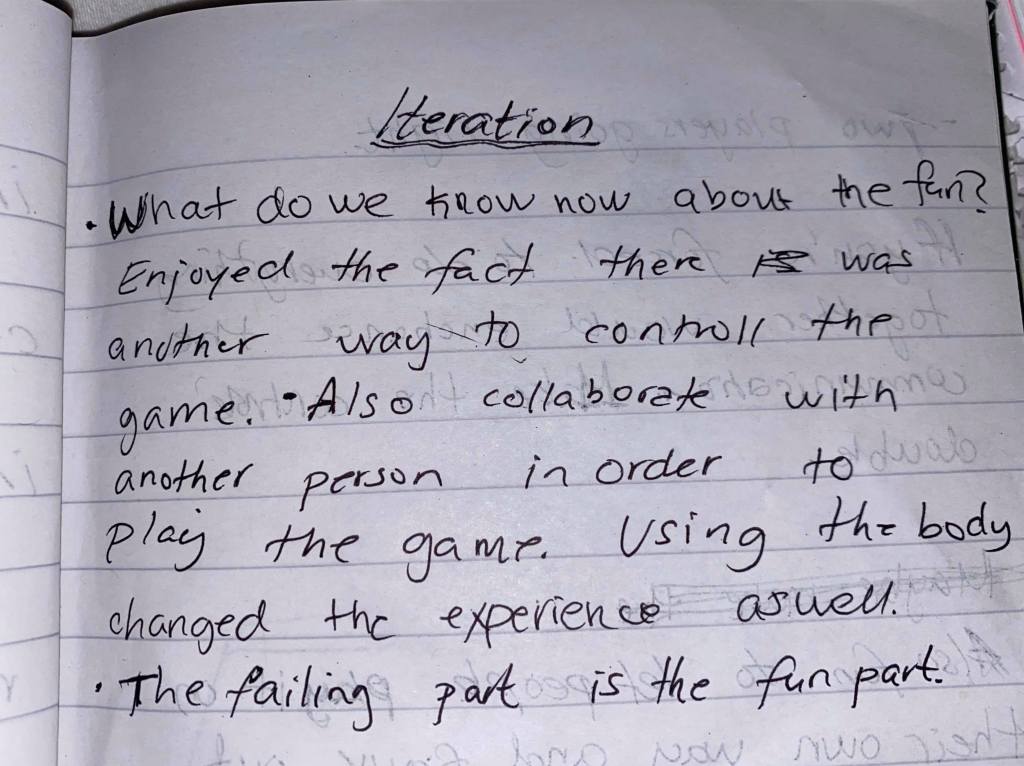 Iteration
• What do we know now about the fun?
Enjoyed the fact there is was
another way to controll the
game. - Also collaborate with
another person in order to
play the game. Using the body
changed the experience aswell.
• The failing part is the fun part.